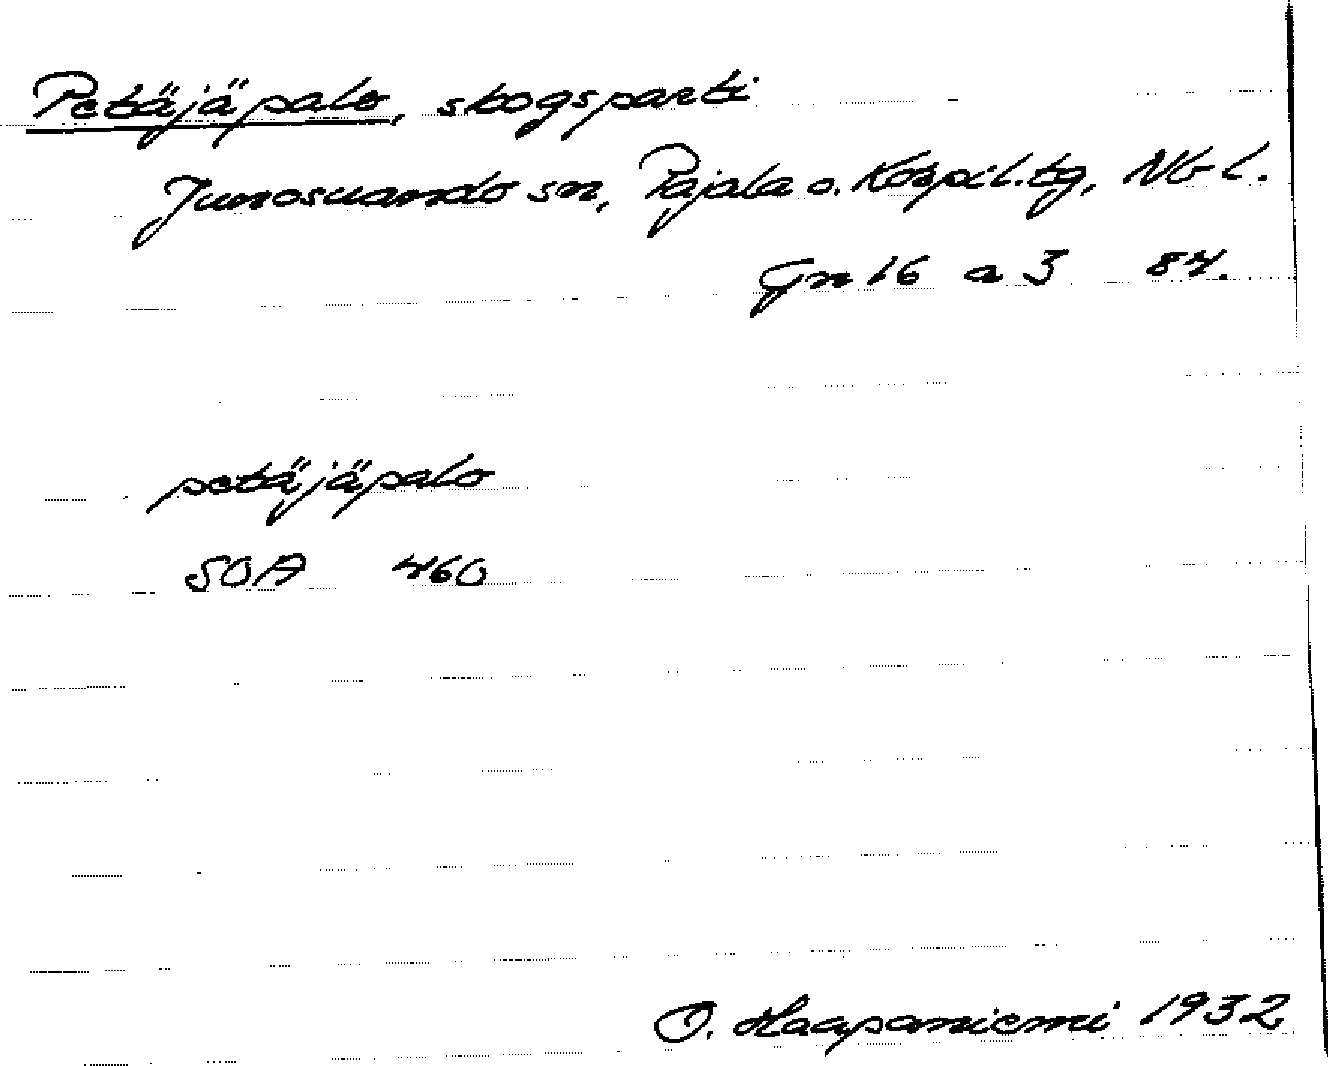 Petäjäpalo, skogsparti
Junosuando sn, Pajala o. Korpil. tg, Nb l.
Gn 16 a 3 84.
petäjäpalo
SOA 460
O. Haapaniemi 1932